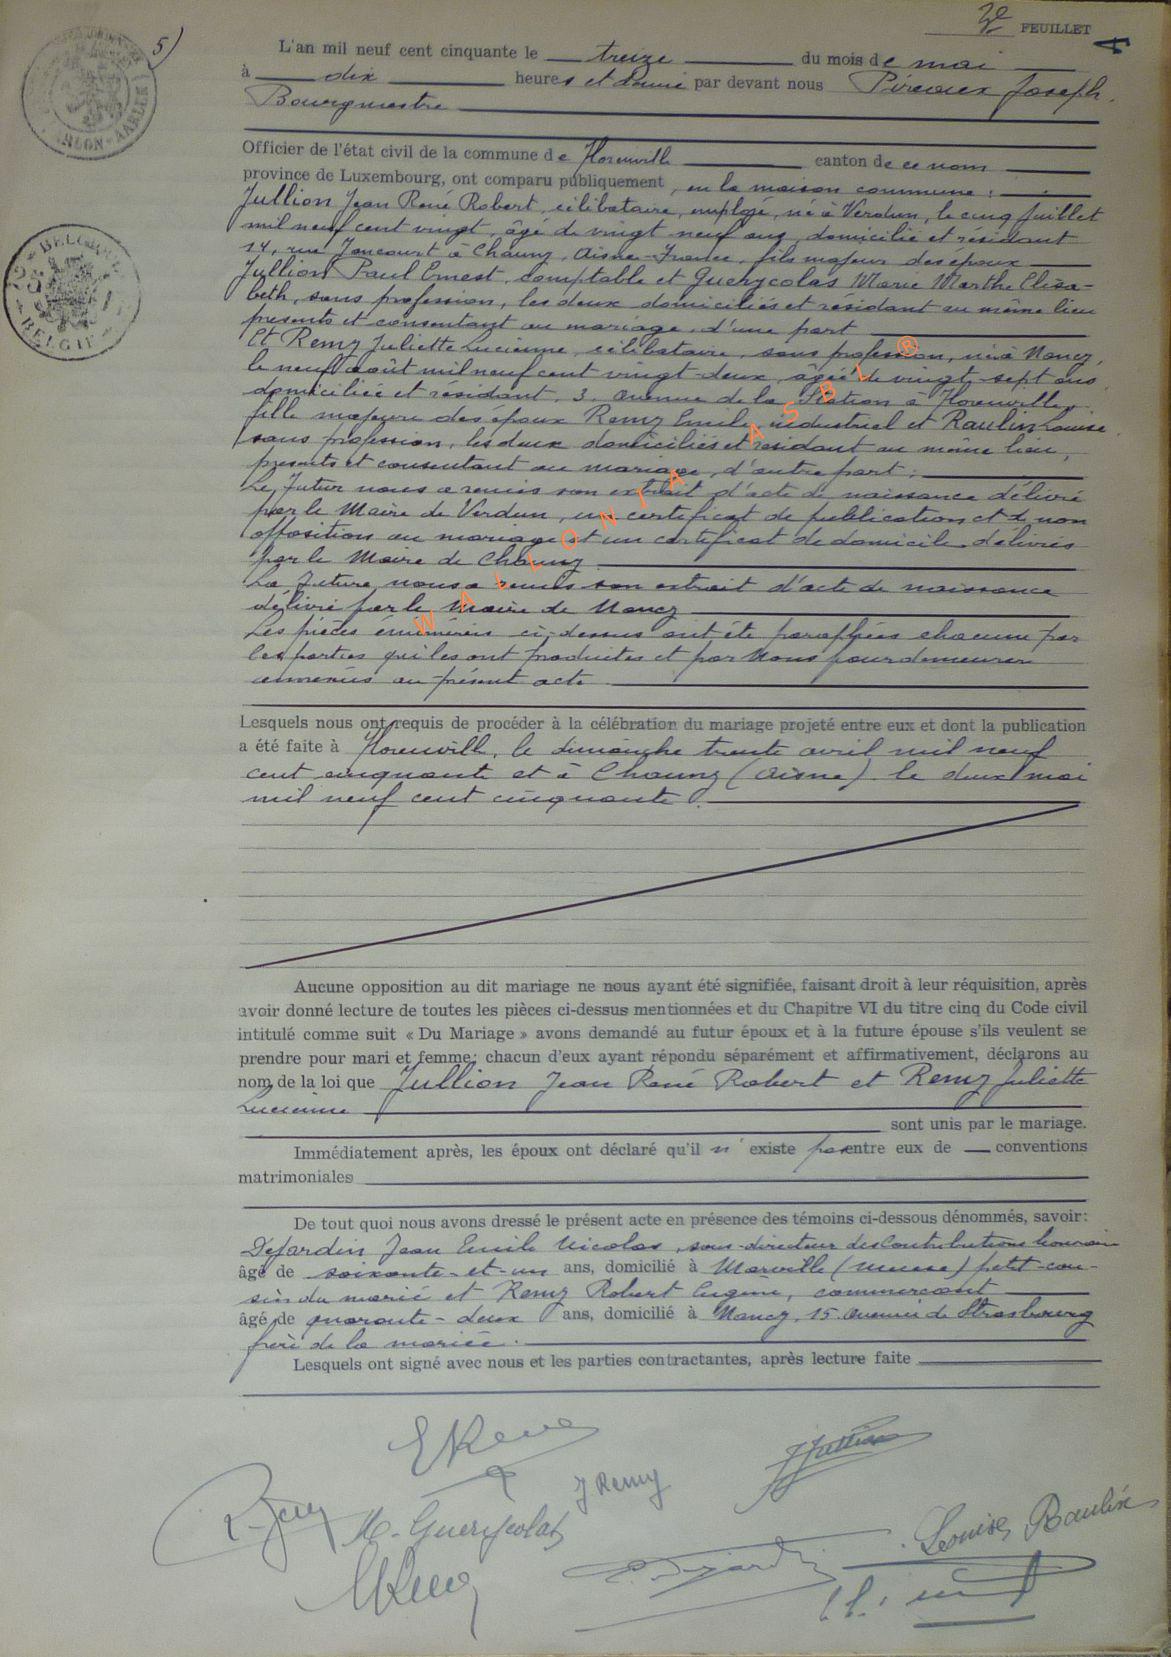 5)
3e FEUILLET
L'an mil neuf cent cinquante le treize du mois de mai
à dix heures et demie par devant nous Joseph,
Bourgmestre
Officier de l'état civil de la commune de Florenville canton de ce nom
province de Luxembourg, ont comparu publiquement, en la maison commune :
Jullion Jean René Robert, célibataire, employé, né à Verdun, le cinq juillet
mil neuf cent vingt, âgé de vingt-neuf ans, domicilié et résidant
14, rue à Chauny, Aisne-France, fils majeur des époux
Jullion Paul Ernest, comptable et Guerycolas Marie Marthe Elisa-
beth, sans profession, les deux domiciliés et résidant au même lieu
présents et consentant au mariage, d'une part
Et Remy Juliette Lucienne, célibataire, sans profession, née à Nancy,
le neuf août mil neuf cent vingt-deux, âgée de vingt-sept ans,
domiciliée et résidant, 3, avenue de la Station à Florenville,
fille majeure des époux Remy Emile, industriel et Raulin Louise
sans profession, les deux domiciliés et résidant au même lieu,
présents et consentant au mariage, d'autre part ;
Le futur nous a remis son extrait d'acte de naissance délivré
par le Maire de Verdun, un certificat de publication et de non
opposition au mariage et un certificat de domicile délivrés
par le Maire de Chauny
La future nous a remis son extrait d'acte de naissance
délivré par le Maire de Nancy
Les pièces énumérées ci-dessus ont été paraphées chacune par
les parties qui les ont produites et par Nous pour demeurer
annexées au présent acte
Lesquels nous ont requis de procéder à la célébration du mariage projeté entre eux et dont la publication
a été faite à Florenville, le dimanche trente avril mil neuf
cent cinquante et à Chauny (Aisne) le deux mai
mil neuf cent cinquante.
Aucune opposition au dit mariage ne nous ayant été signifiée, faisant droit à leur réquisition, après
avoir donné lecture de toutes les pièces ci-dessus mentionnées et du Chapitre VI du titre cinq du Code civil
intitulé comme suit « Du Mariage » avons demandé au futur époux et à la future épouse s'ils veulent se
prendre pour mari et femme; chacun d'eux ayant répondu séparément et affirmativement, déclarons au
nom de la loi que Jullion Jean René Robert et Remy Juliette
Lucienne
sont unis par le mariage.
Immédiatement après, les époux ont déclaré qu'il n'existe pas entre eux de conventions
matrimoniales
De tout quoi nous avons dressé le présent acte en présence des témoins ci-dessous dénommés, savoir:
Dejardin Jean Emile Nicolas, sous-directeur des Contributions
âgé de soixante-et-un ans, domicilié à Marville (Meuse) petit-cou-
sin du marié et Remy Robert Eugène, commerçant
âgé de quarante-deux ans, domicilié à Nancy, 15 avenue de Strasbourg
frère de la mariée.
Lesquels ont signé avec nous et les parties contractantes, après lecture faite
J Jullion
J Remy
M. Guerycolas
Louise Raulin
E. Dejardin
WALLONIA ASBL ®